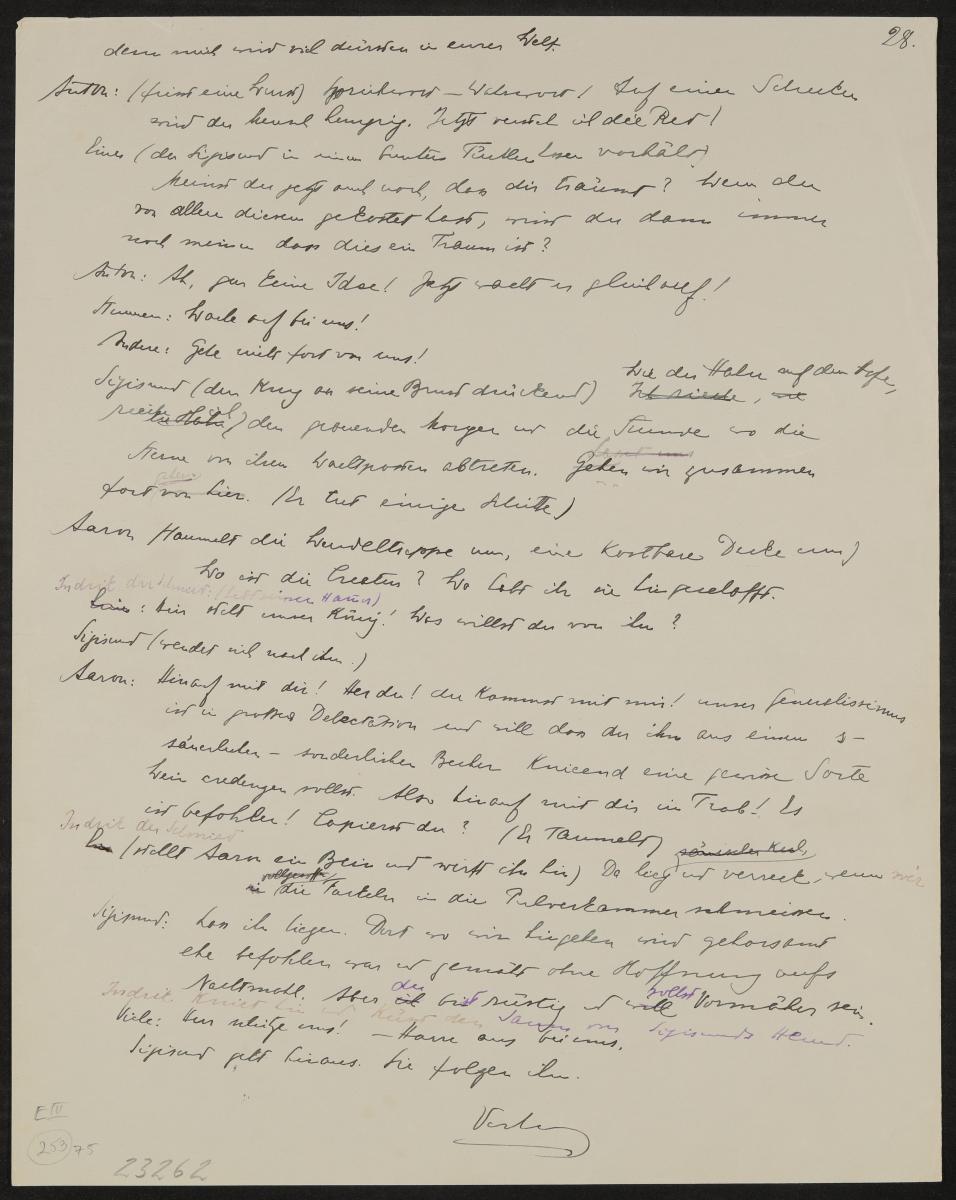 28.
denn mich wird viel dürsten in eurer Welt.
Anton: (frisst eine Wurst) Sprichwort – Wahrwort! Auf einen Schrecken
wird der Mensch hungrig. Jetzt versteh ich die Red!
Einer (der Sigismund in einen bunten vorhält)
Meinst du jetzt auch noch, dass dir träumt? Wenn du
von allen diesem gekostet hast, wirst du dann immer
noch meinen dass dies ein Traum ist?
Anton: Ah, gar keine Idee! Jetzt wacht er gleich auf!
Stimmen: Wache auf bei uns!
Andere: Gehe nicht fort von uns!
Wie der Hahn auf dem Hofe,
Sigismund (den Krug an seine Brust drückend) Ich rieche, wie
rieche ich den grauenden Morgen und die Stunde wo die
Sterne von ihren Wachtposten abtreten. Gehen wir zusammen
fort von hier. (Er tut einige Schritte)
Aaron (taumelt die Wendeltreppe um, eine kostbare Decke um)
Wo ist die Creatur? Wo habt ihr sie hingeschafft.
Indrik der Schmied:
Einer: Hier steht unser König! Was willst du von ihm?
Sigismund (wendet sich nach ihm.)
Aaron: Hinauf mit dir! He du! du kommst mit mir! unser Generalissimus
ist in grosser Delectation und will dass du ihm aus einem s–
säuerlichen – sonderlichen Becher knieend eine gewisse Sorte
Wein credenzen sollst. Also hinauf mit dir im Trab! Es
ist befohlen! Capierst du? (Er taumelt)
Indrik der Schmied
(stellt Aaron ein Bein und wirft ihn hin) Da lieg und verreck, wenn wir
die Fackeln in die Pulverkammer schmeissen.
Sigismund: Lass ihn liegen. Dort wo wir hingehen wird gehorsamt
ehe befohlen war und gemäht ohne Hoffnung aufs
Nachtmahl. Aber du bist rüstig und sollst Vormäher sein.
Indrik kniet hin und küsst den Saum von Sigismunds Hemd.
Viele: Herr schütze uns! – Harre aus bei uns.
Sigismund geht hinaus. Sie folgen ihm.
Vorhang
E IV
253 75
23262